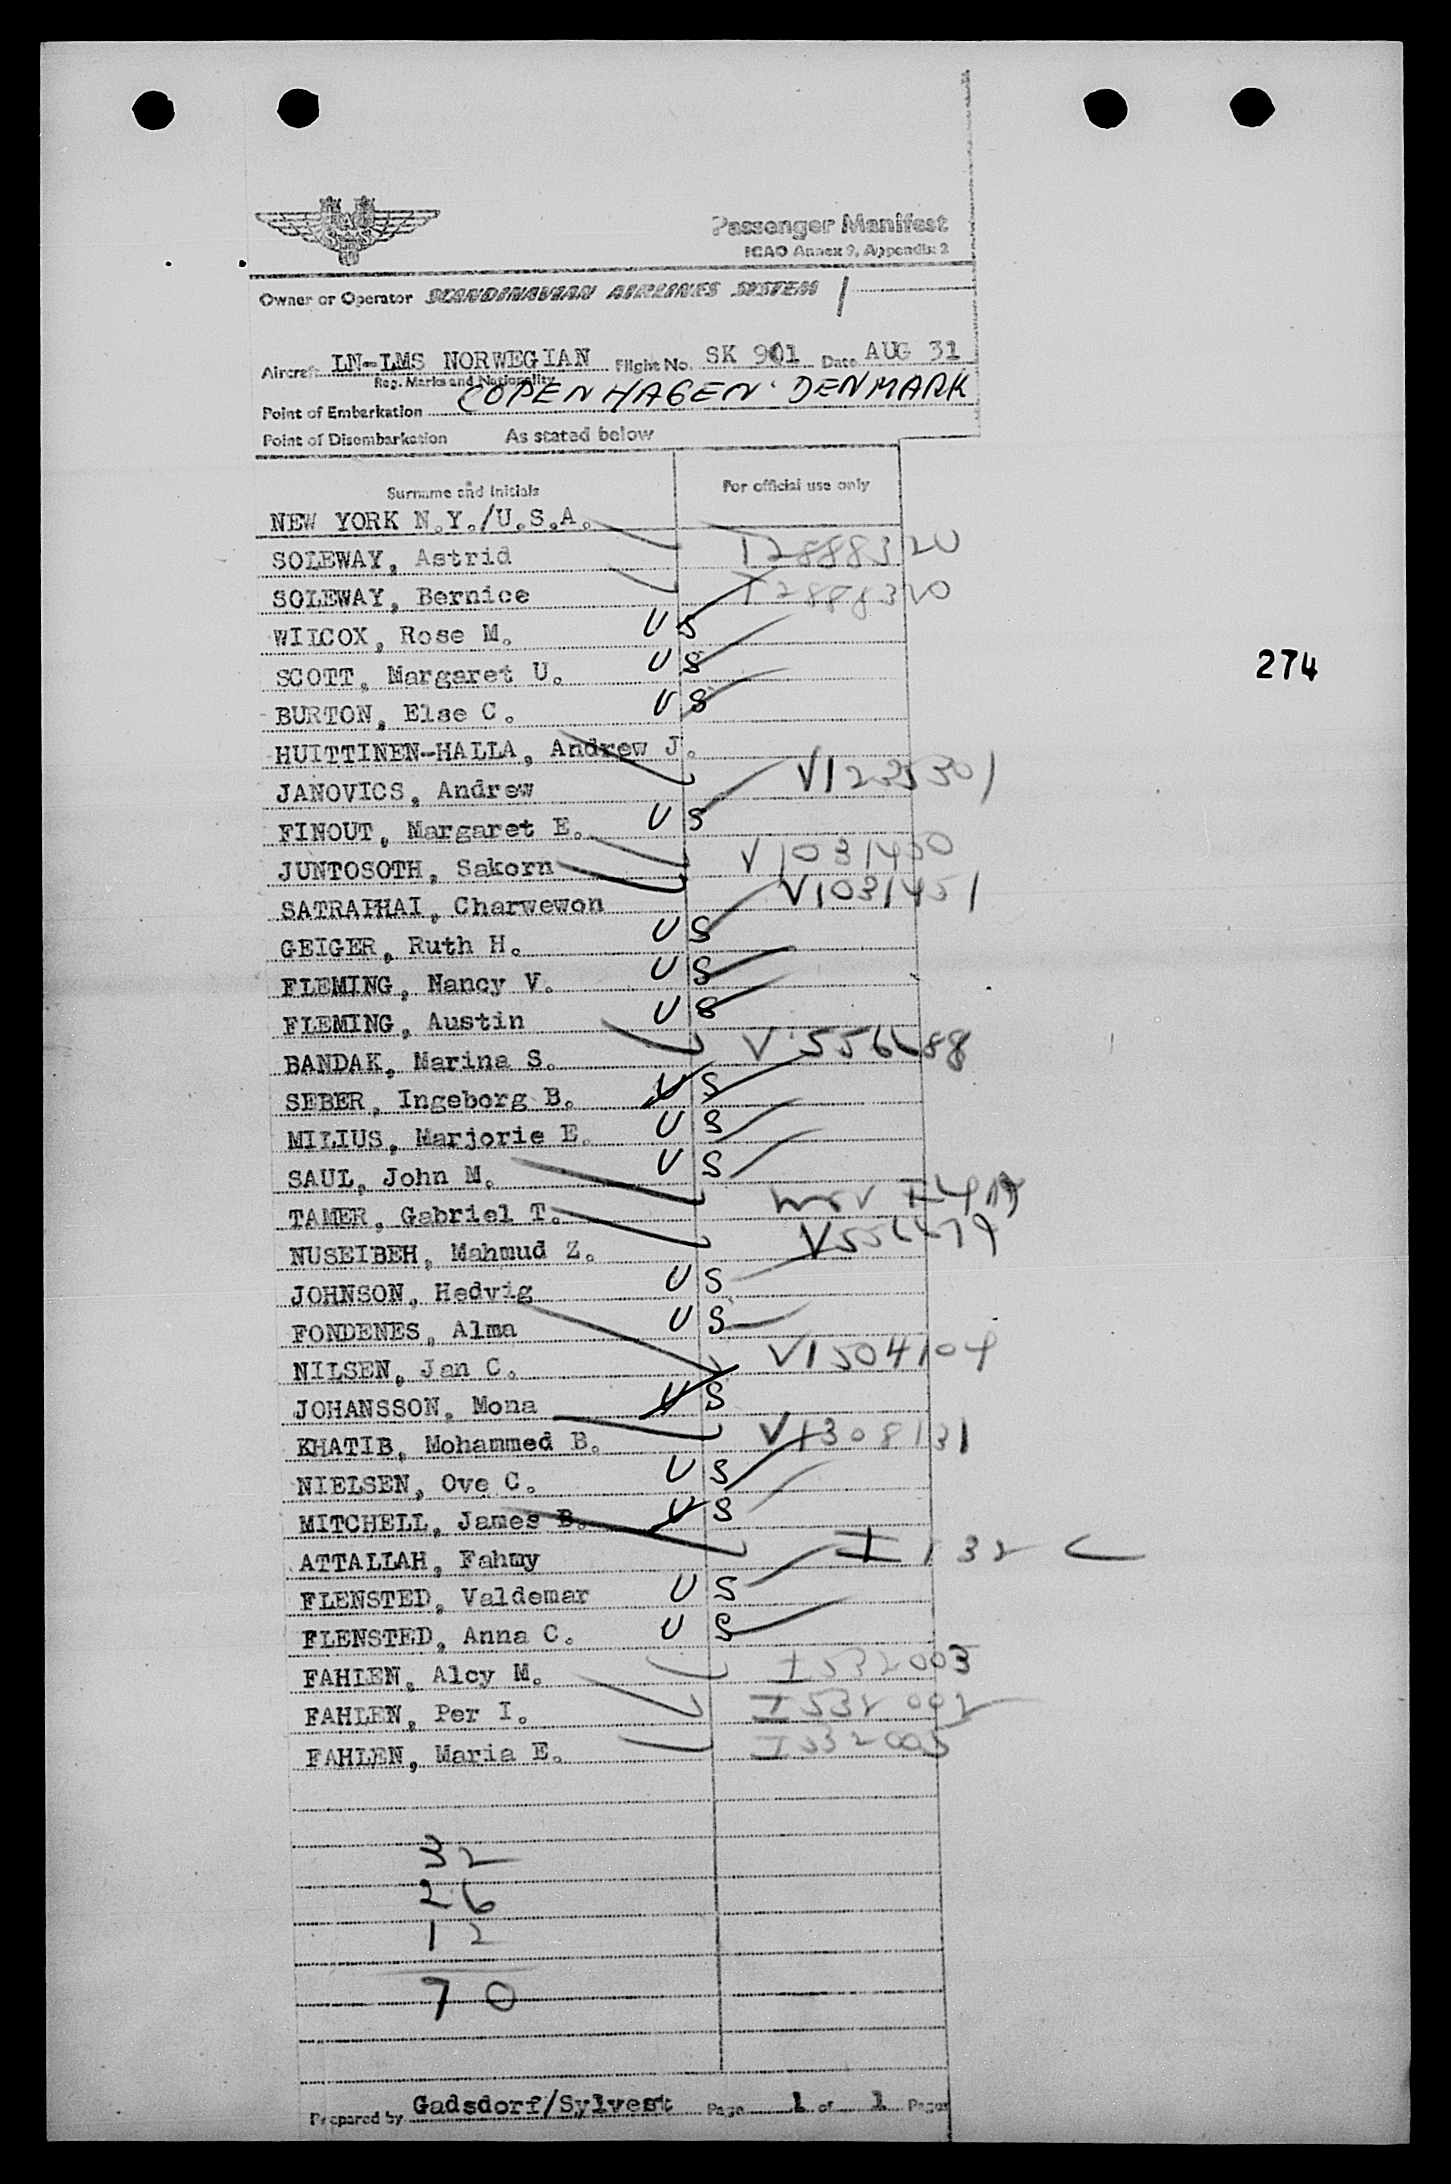 Passenger Manifest
ICAO Annex 9, Appendix 2
Owner or Operator SCANDINAVIAN AIRLINES SYSTEM
Aircraft LN-LMS NORWEGIAN Flight No. SK 901 Date AUG 31
Reg. Marks and Nationality
Point of Embarkation COPENHAGEN DENMARK
Point of Disembarkation As stated below
Surname and Initials For official use only
NEW YORK N.Y./U.S.A.
SOLEWAY, Astrid T2888320
SOLEWAY, Bernice T2888320
WILCOX, Rose M. US
SCOTT, Margaret U. US
274
BURTON, Else C. US
HUITTINEN-HALLA, Andrew J.
JANOVICS, Andrew V1235301
FINOUT, Margaret E. US
JUNTOSOTH, Sakorn V1031450
SATRAPHAI, Charwewon V1031451
GEIGER, Ruth H. US
FLEMING, Nancy V. US
FLEMING, Austin US
BANDAK, Marina S. V 556688
SEBER, Ingeborg B. US
MILIUS, Marjorie E. US
SAUL, John M. US
TAMER, Gabriel T.
NUSEIBEH, Mahmud Z.
JOHNSON, Hedvig US
FONDENES, Alma US
NILSEN, Jan C. V1504104
JOHANSSON, Mona US
KHATIB, Mohammed B. V1308131
NIELSEN, Ove C. US
MITCHELL, James B. US
ATTALLAH, Fahmy I 132 C
FLENSTED, Valdemar US
FLENSTED, Anna C. US
FAHLEN, Alcy M. I532003
FAHLEN, Per I. I532002
FAHLEN, Maria E. I532005
32
26
12
70
Prepared by Gadsdorf/Sylvest Page 1 of 1 Pages